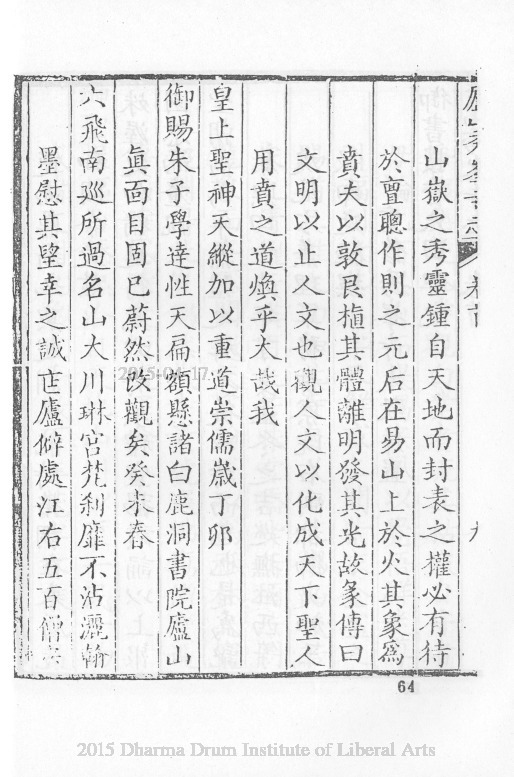 山嶽之秀靈鍾自天地而封表之權必有待
於亶聰作則之元后在易山上於火其象爲
賁夫以敦艮植其體離明發其光故彖傳曰
文明以止人文也觀人文以化成天下聖人
用賁之道煥乎大哉我
皇上聖神天縱加以重道崇儒歲丁卯
御賜朱子學達性天扁額懸諸白鹿洞書院廬山
眞面目固已蔚然改觀矣癸未春
六飛南巡所過名山大川琳宮梵刹靡不沾灑翰
墨慰其朢幸之誠庐廬僻處江右五百僧
64
2015.04.17
2015 Dharma Drum Institute of Liberal Arts